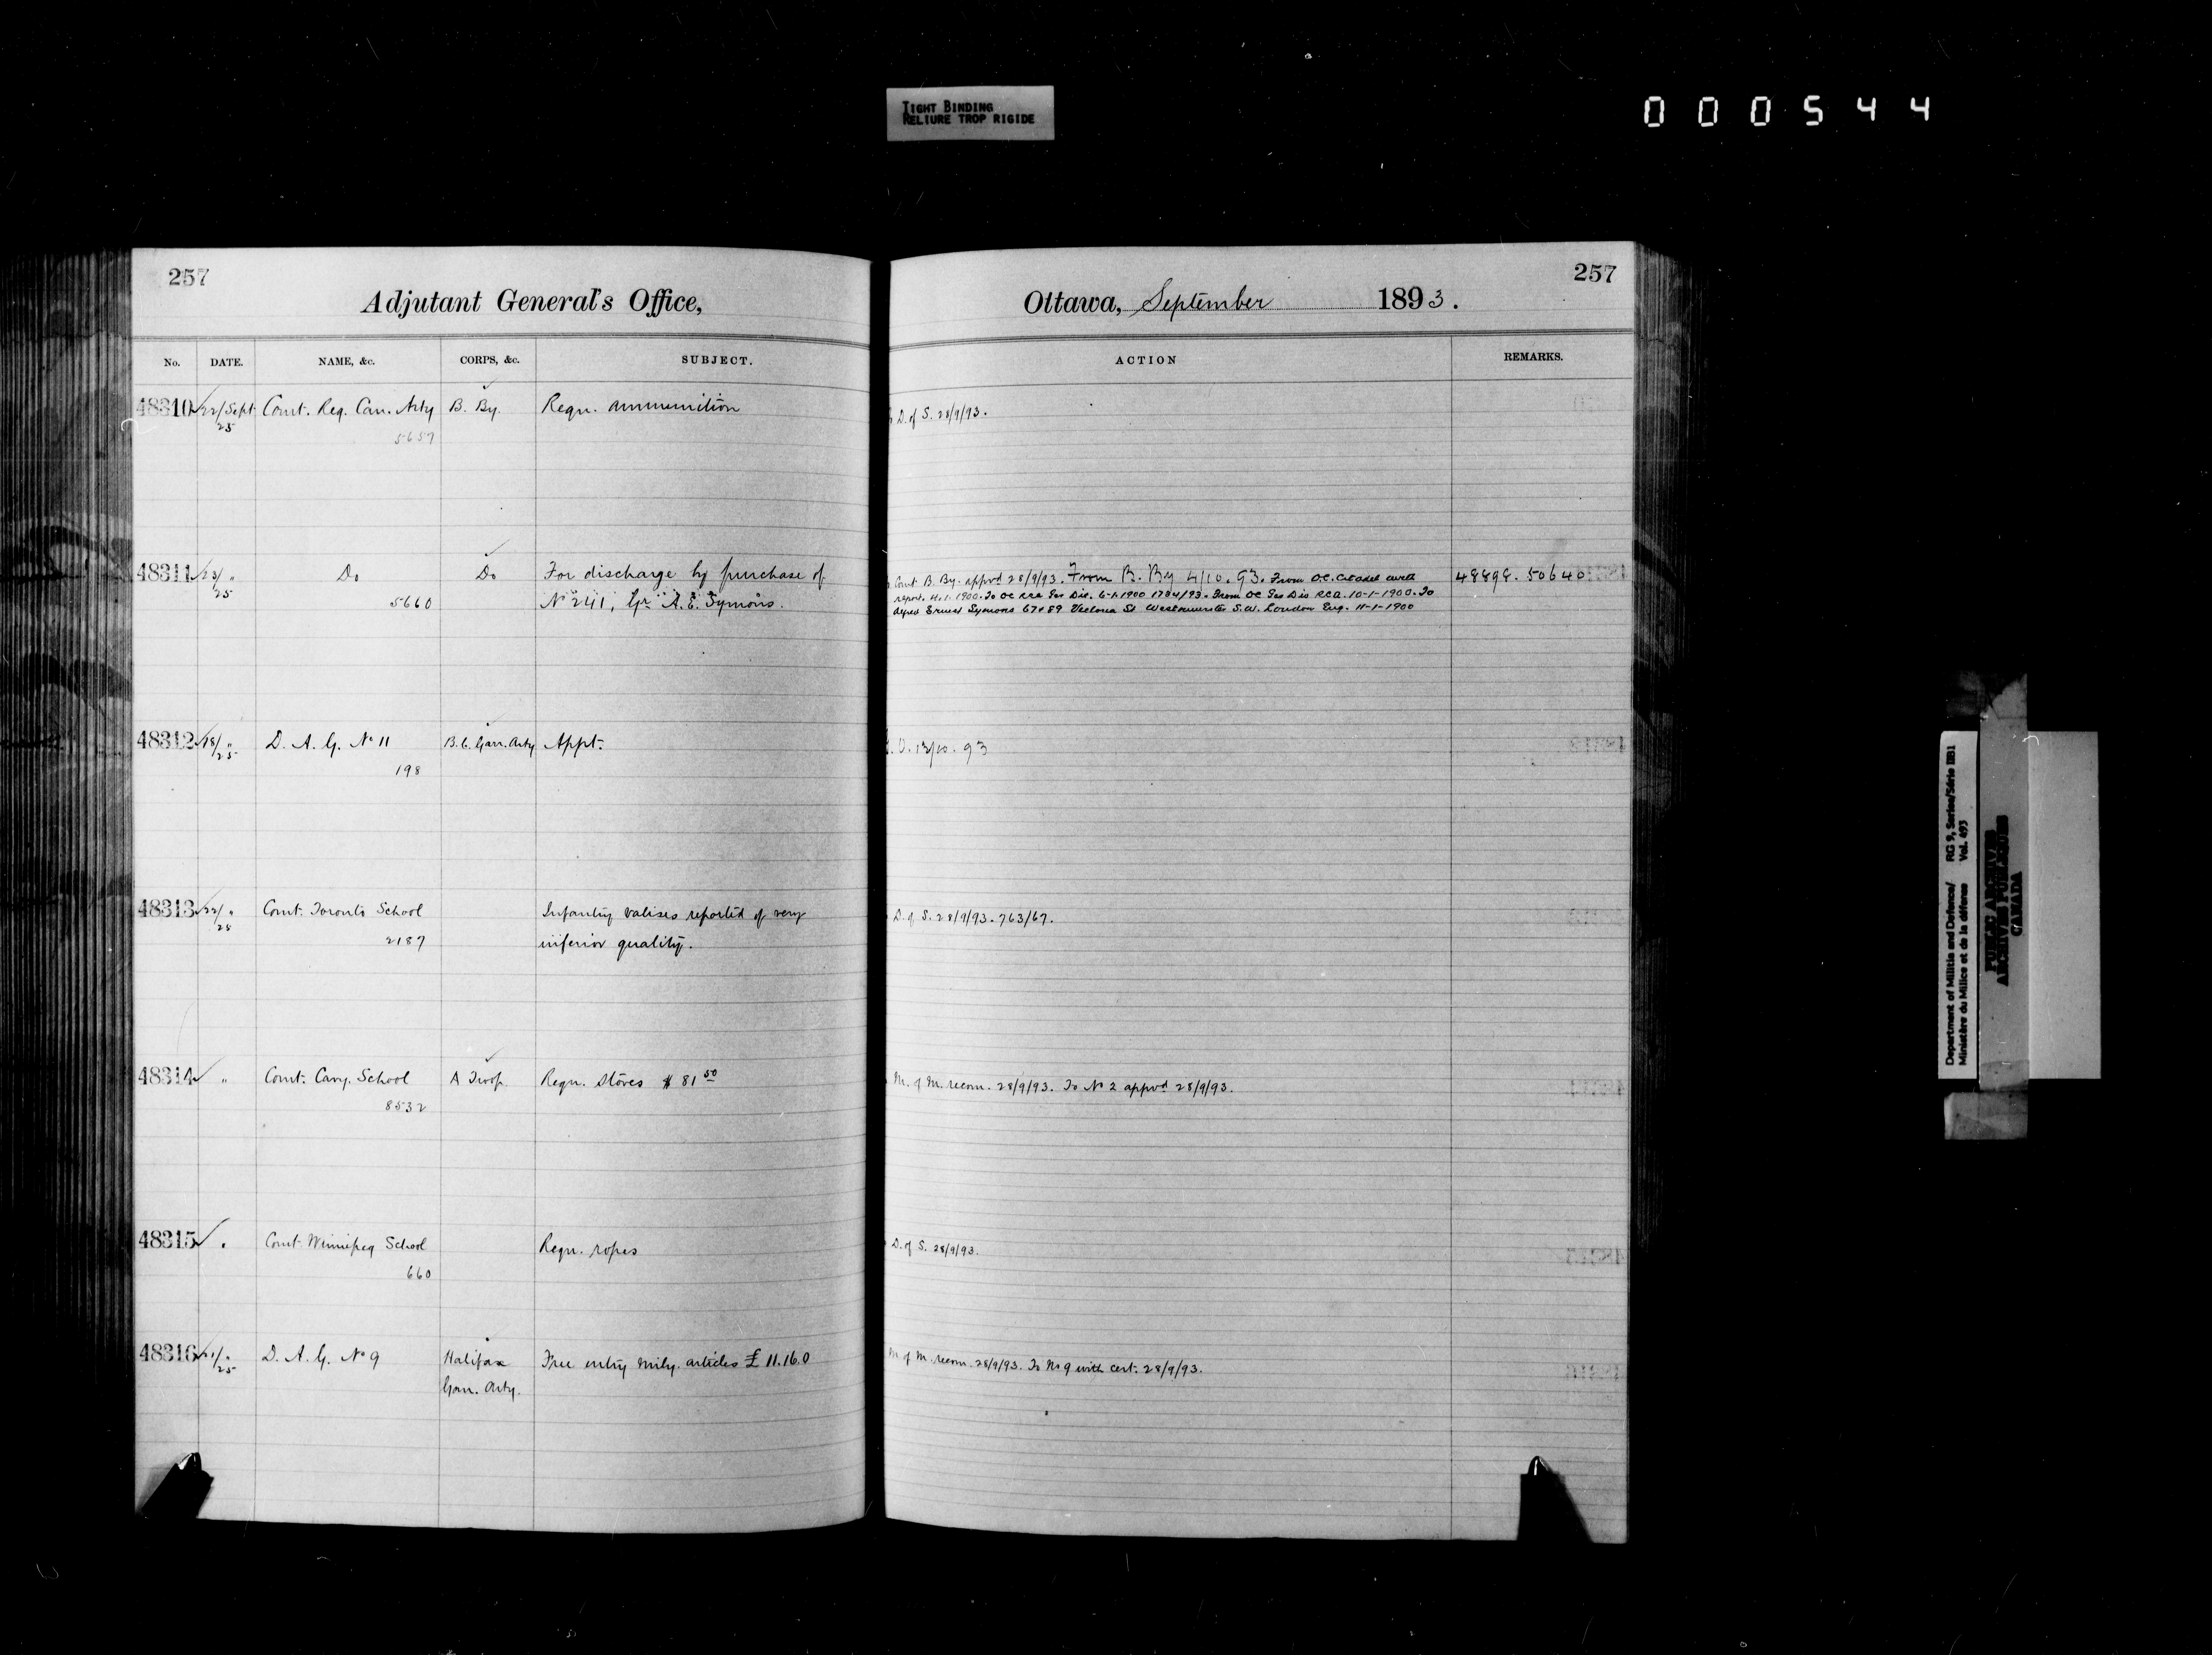 TIGHT BINDING
RELIURE TROP RIGIDE
000544
257
Adjutant General's Office,
No. DATE. NAME, &c. CORPS, &c. SUBJECT.
48310 22/Sept Comt. Reg. Can. Arty B. By. Requ. ammunition
25
5657
48311 23/ " Do Do For discharge by purchase of
25
5660 No 241, Gr. A. E. Symons.
48312 18/ " D. A. G. No 11 B.C. Garr. Arty Appt.
25
198
48313 22/ " Comt. Toronto School Infantry valises reported of very
25
2187 inferior quality.
48314 " Comt. Cavy. School A Troop Requ. stores $ 81 50
8532
48315 " Comt. Winnipeg School Requ. ropes
660
48316 21/ " D. A. G. No 9 Halifax Free entry mily. articles £ 11.16.0
25
Garr. Arty.
257
Ottawa, September 1893.
ACTION REMARKS.
D. of S. 28/9/93.
Comt B. By. appvd 28/9/93. From B. By 4/10.93. From O.C. Citadel with 48898. 50640
report. 4.1.1900. To OC RCA Ges Dis. 6-1-1900 1784/93. From OC Ges Dis RCA. 10-1-1900. To
Alfred Ernest Symons 67+89 Victoria St Westminster S.W. London Eng. 11-1-1900
G. O. 13/10.93
D. of S. 28/9/93. 763/67.
M. of M. recom. 28/9/93. To No 2 appvd 28/9/93.
D. of S. 28/9/93.
M. of M. recom. 28/9/93. To No 9 with cert. 28/9/93.
Department of Militia and Defence/ RG 9, Series/Série IIB1
Ministère du Milice et de la défense Vol. 493
PUBLIC ARCHIVES
ARCHIVES PUBLIQUES
CANADA